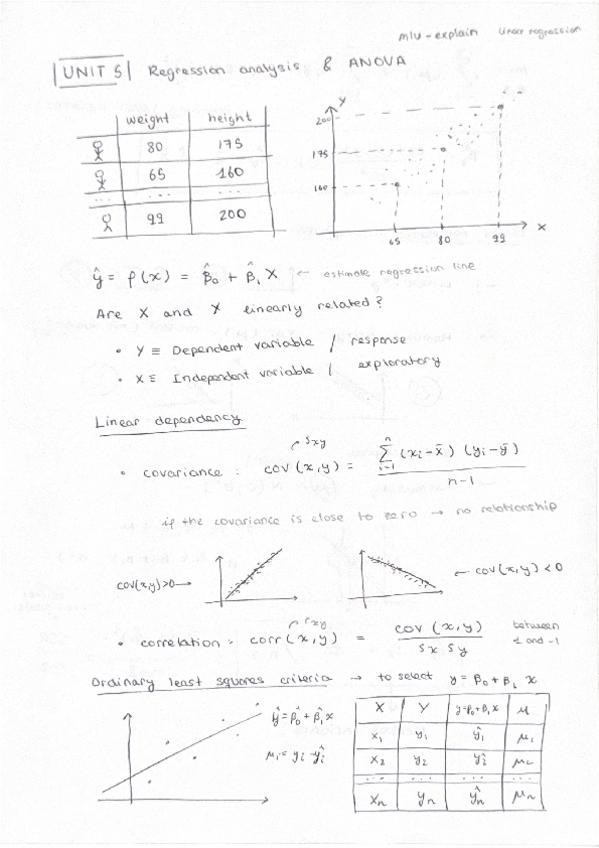 mlu-explain linear regression
UNIT 5 Regression analysis & ANOVA
weight height
80 175
65 160
... ...
99 200
Y
200
175
160
65 80 99 X
ŷ = f(x) = β̂₀ + β̂₁ X ← estimate regression line
Are X and Y linearly related?
• Y ≡ Dependent variable / response
• X ≡ Independent variable / exploratory
Linear dependency
Sxy
• covariance: cov (x,y) = Σⁿᵢ₌₁ (xi - x̄) (yi - ȳ) / n-1
if the covariance is close to zero → no relationship
cov(x,y)>0 →
← cov(x,y) < 0
rxy
• correlation: corr(x,y) = cov (x,y) / Sx Sy between 1 and -1
Ordinary least squares criteria → to select y = β₀ + β₁ x
ŷ = β̂₀ + β̂₁x
μi = yi - ŷi
X Y y=β₀+β₁x μ
x₁ y₁ ŷ₁ μ₁
x₂ y₂ ŷ₂ μ₂
... ... ... ...
xn yn ŷn μn